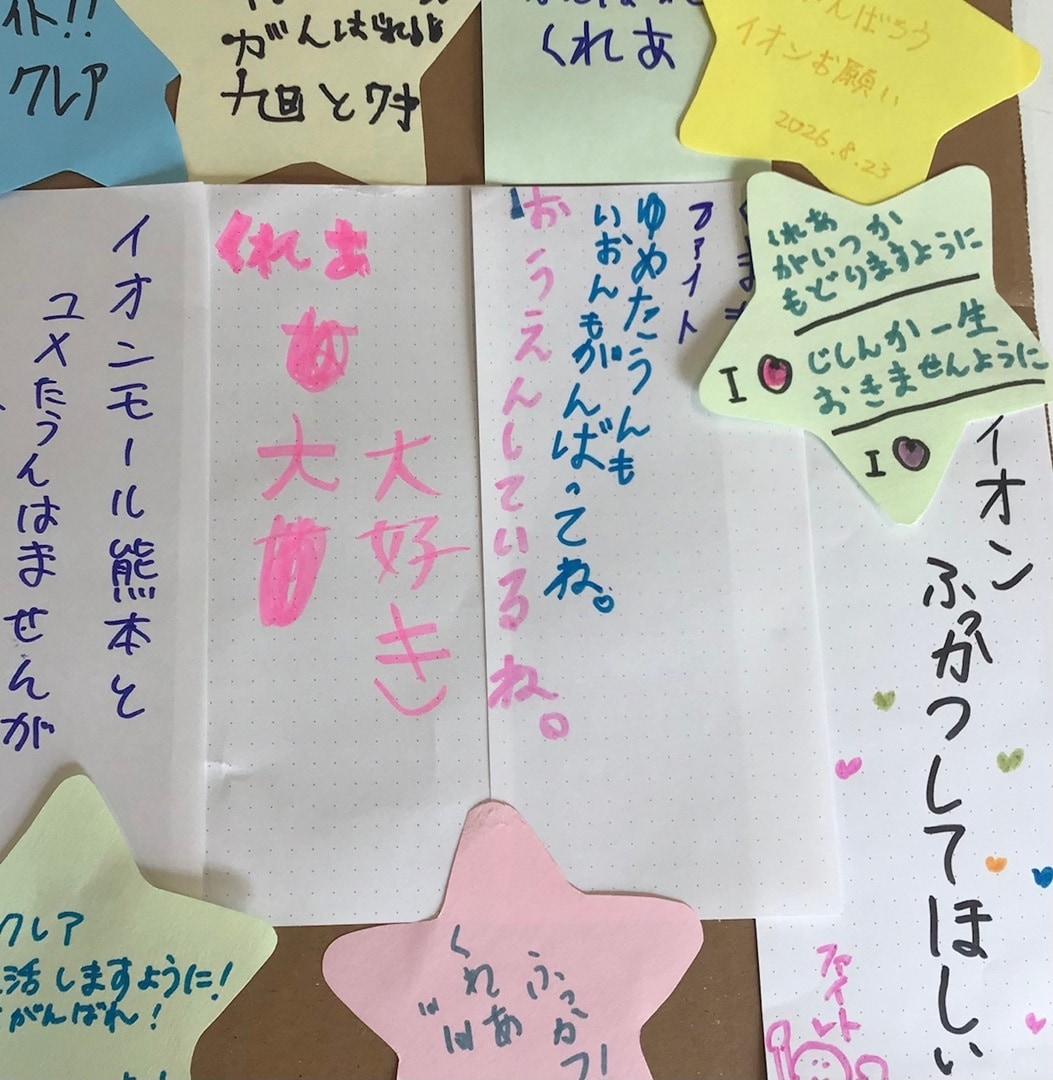 クレア
がんばれるよ
くれあ
がんばろう
イオンお願い
2026.8.23
くれあ
がいつか
もどりますように
じしんが一生
おきませんように
I
I
ファイト
ゆめたうんも
いおんもがんばってね。
おうえんしているね。
くれあ
大好き
大
イオンモール熊本と
ユメたうんはませんが
イオン
ふっかつしてほしい
ファイト
クレア
活しますように!
がんばれ!
くれあ
ふっかつ!